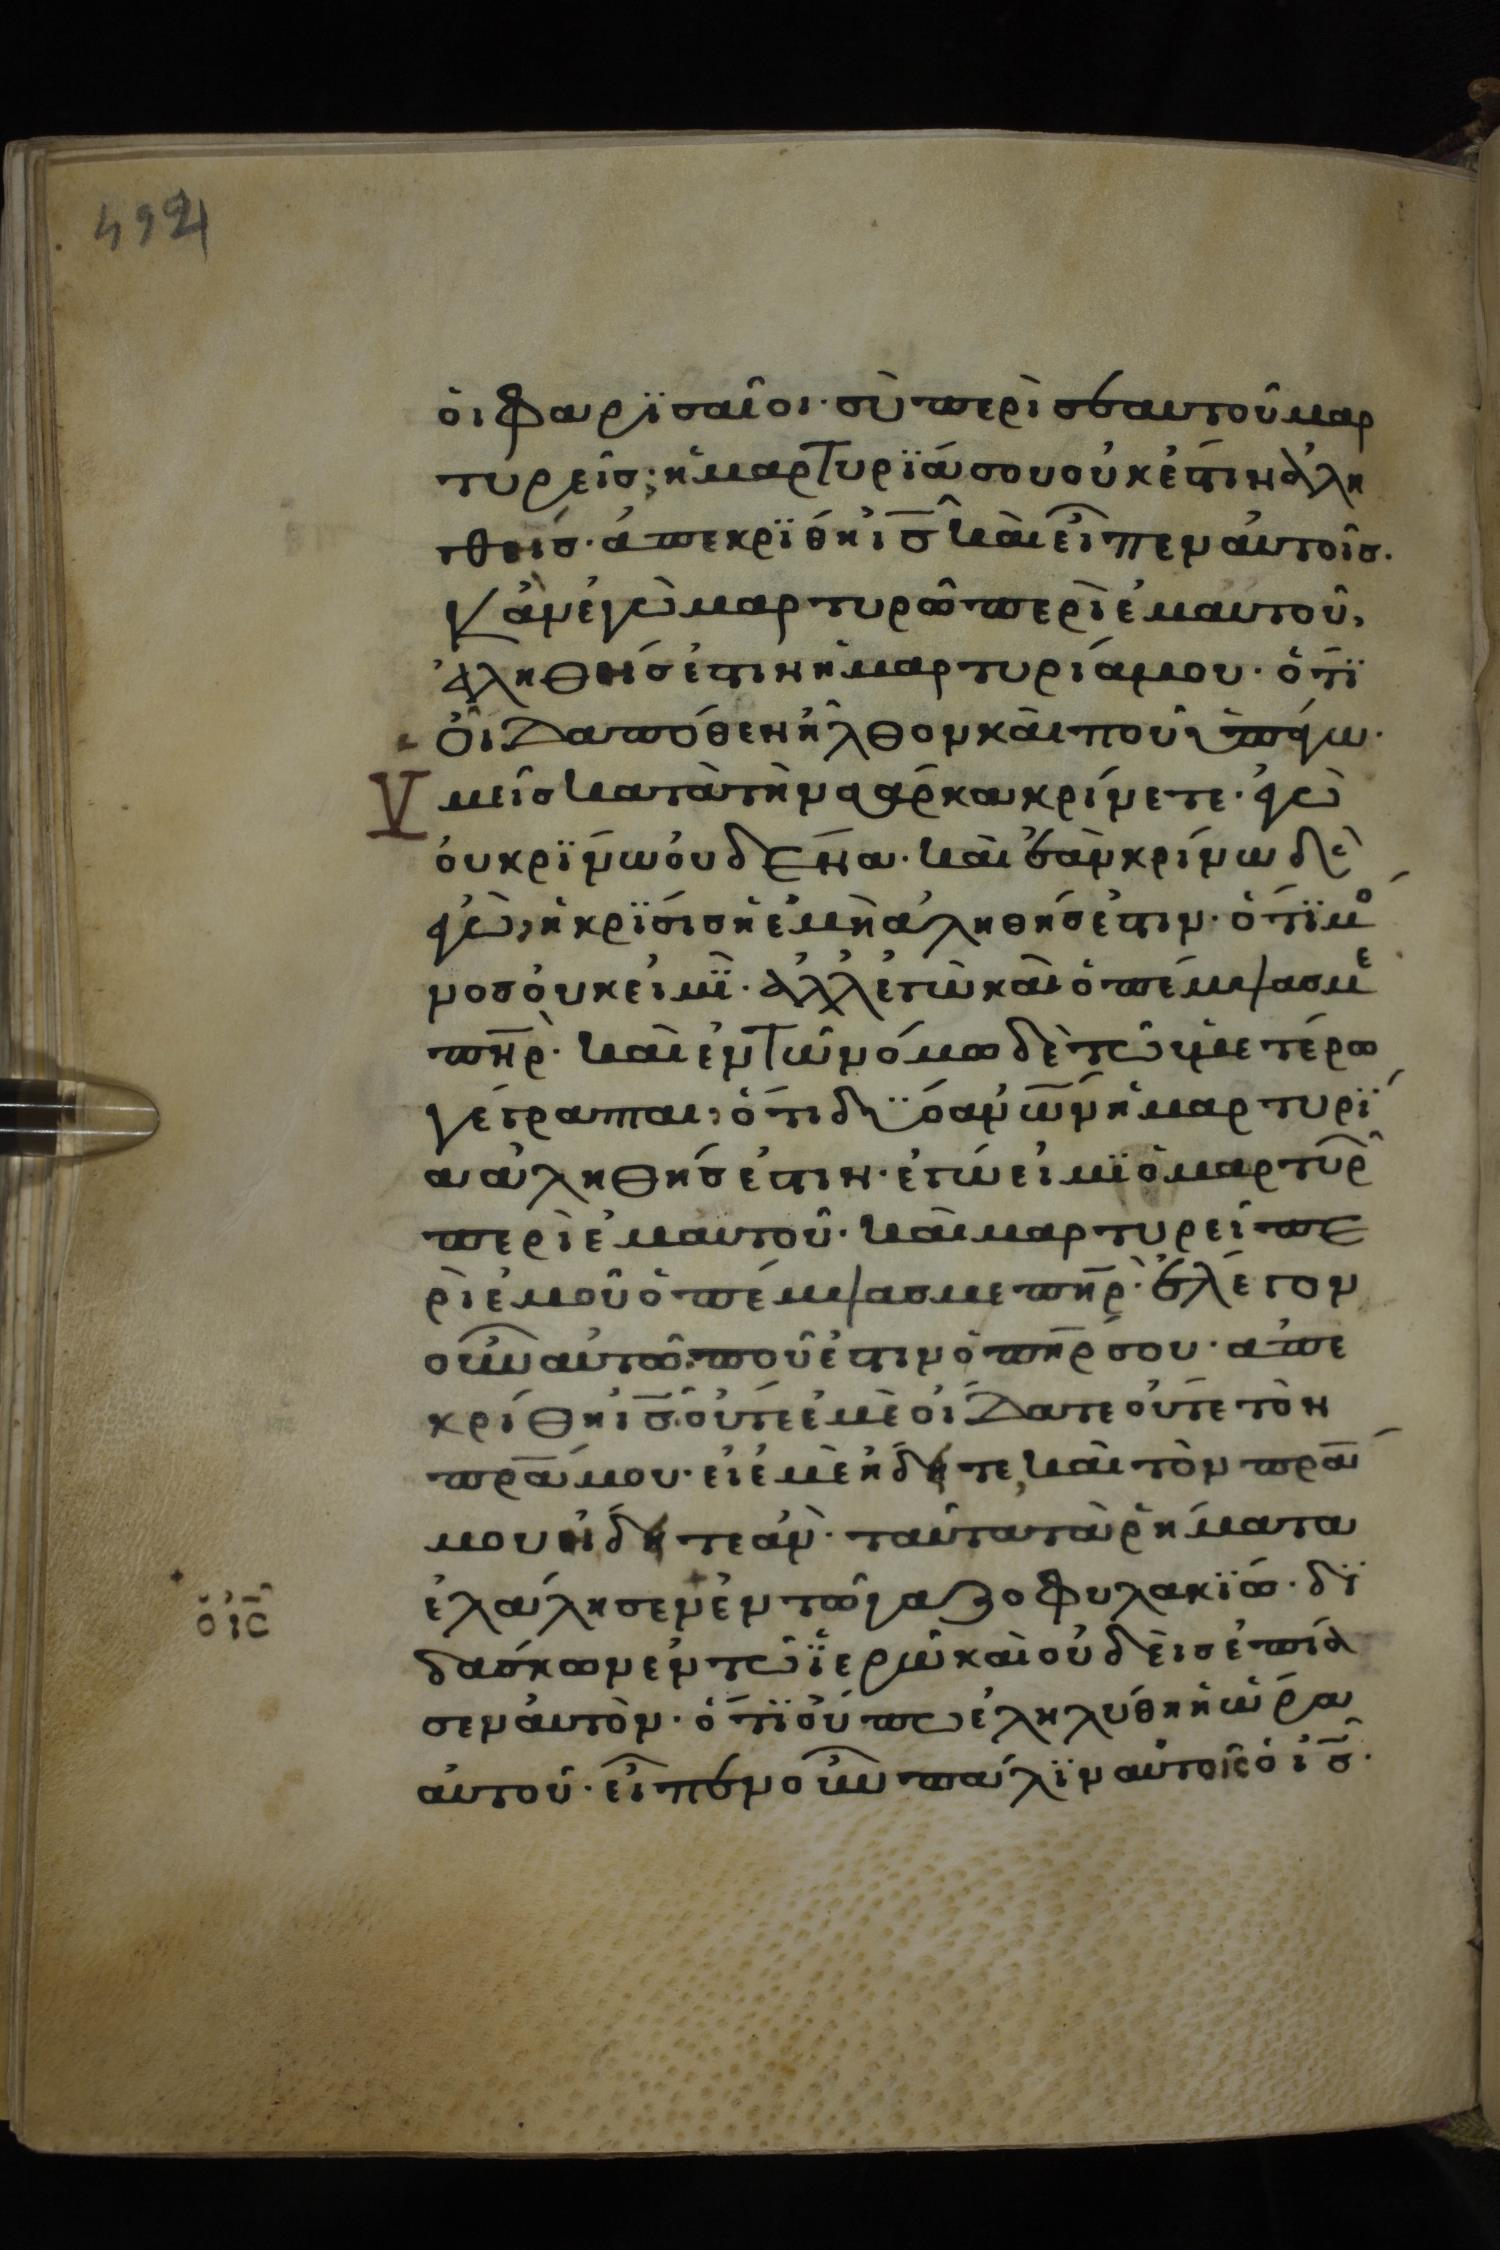 4921
ὁι φαρϊσαῖοι· σὺ περὶ σεαυτοῦ μαρ
τυρεῖσ; ἡ μαρτυρϊά σου οὐκ ἔστιν ἀλη
θείσ· ἀπεκρϊθη ἰσ̅ καὶ εἶπεν αὐτοῖσ·
Κἀν ἐγὼ μαρτυρῶ περὶ ἐμαυτοῦ,
ἀληθήσ ἐστιν ἡ μαρτυρία μου· ὅτϊ
Οἶδα πόθεν ἦλθον καὶ ποῦ ὑπάγω·
Ὑμεῖσ κατὰ τὴν σάρκα κρίνετε· ἐγὼ
ὀυ κρϊνω ὀυδένα· καὶ ἐὰν κρίνω δὲ
ἐγὼ, ἡ κρϊσισ ἡ ἐμὴ ἀληθήσ ἐστιν· ὅτϊ μο
νοσ ὀυκ εἰμϊ· ἀλλ' ἐγὼ καὶ ὁ πέμψασ με
πη̅ρ· καὶ ἐν τῶ νόμω δὲ τῶ ὑμετέρω
γέγραπται, ὅτι δύο ἀνω̅ν ἡ μαρτυρϊ
α ἀληθήσ ἐστιν· ἐγώ εἰμϊ ὁ μαρτυρ
περὶ ἐμαυτοῦ· καὶ μαρτυρεῖ πε
ρὶ ἐμοῦ ὁ πέμψασ με πη̅ρ· ἔλεγον
οὖν αὐτῶ· ποῦ ἔστιν ὁ πη̅ρ σου· ἀπε
κρίθη ἰσ̅· οὔτε ἐμὲ οἴδατε οὔτε τὸν
πρ̅α μου· εἰ ἐμὲ ἤδητε, καὶ τὸν πρ̅α
μου ἤδητε ἀν· ταῦτα τὰ ῥήματα
ἐλάλησεν ἐν τῶ γαζοφυλακϊω· δϊ
ὁ ἰς̅
δάσκων ἐν τῶ ϊερῶ καὶ οὐδεὶσ ἐπία
σεν ἀυτὸν· ὅτϊ οὔπω ἐληλύθη ἡ ὥρα
ἀυτοῦ· εἶπεν οὖν πάλϊν αὐτοῖς ὁ ἰσ̅·